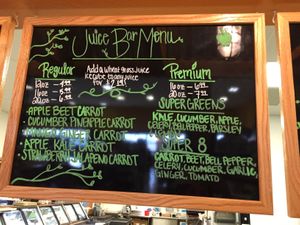 Juice Bar Menu
Regular
12oz - 4.99
16oz - 5.99
20oz - 6.99
Add a wheat grass Juice
to any Juice
for $2.99!
Premium
16oz - 6.99
20oz - 7.99
- APPLE BEET CARROT
- CUCUMBER PINEAPPLE CARROT
GINGER CARROT
- APPLE KALE CARROT
- STRAWBERRY JALAPENO CARROT
SUPER GREENS
KALE, CUCUMBER, APPLE,
CELERY, BELL PEPPER, PARSLEY
SUPER 8
CARROT, BEET, BELL PEPPER,
CELERY, CUCUMBER, GARLIC,
GINGER, TOMATO